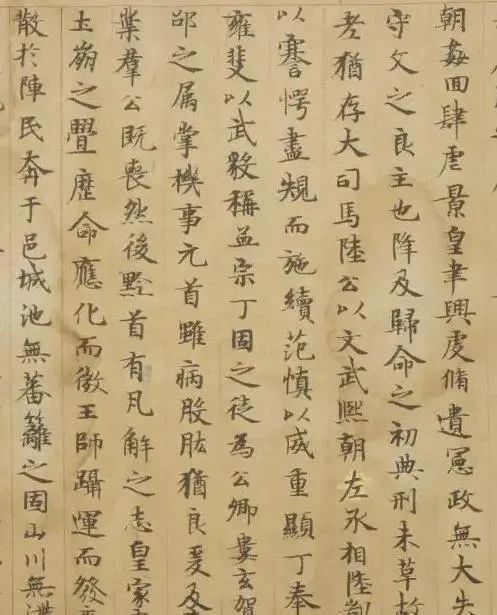 朝姦回肆虐景皇聿興虔脩遺憲政無大失
守文之良主也降及歸命之初典刑未草故
老猶存大司馬陸公以文武熙朝左丞相陸
以謇愕盡規而施續范慎以威重顯丁奉
雍斐以武毅稱孟宗丁固之徒為公卿婁玄賀
邵之属掌機事元首雖病股肱猶良爰及
業羣公既喪然後黔首有凡解之志皇家
土崩之舋歷命應化而微王師躡運而發
散於陣民奔于邑城池無蕃籬之固山川無